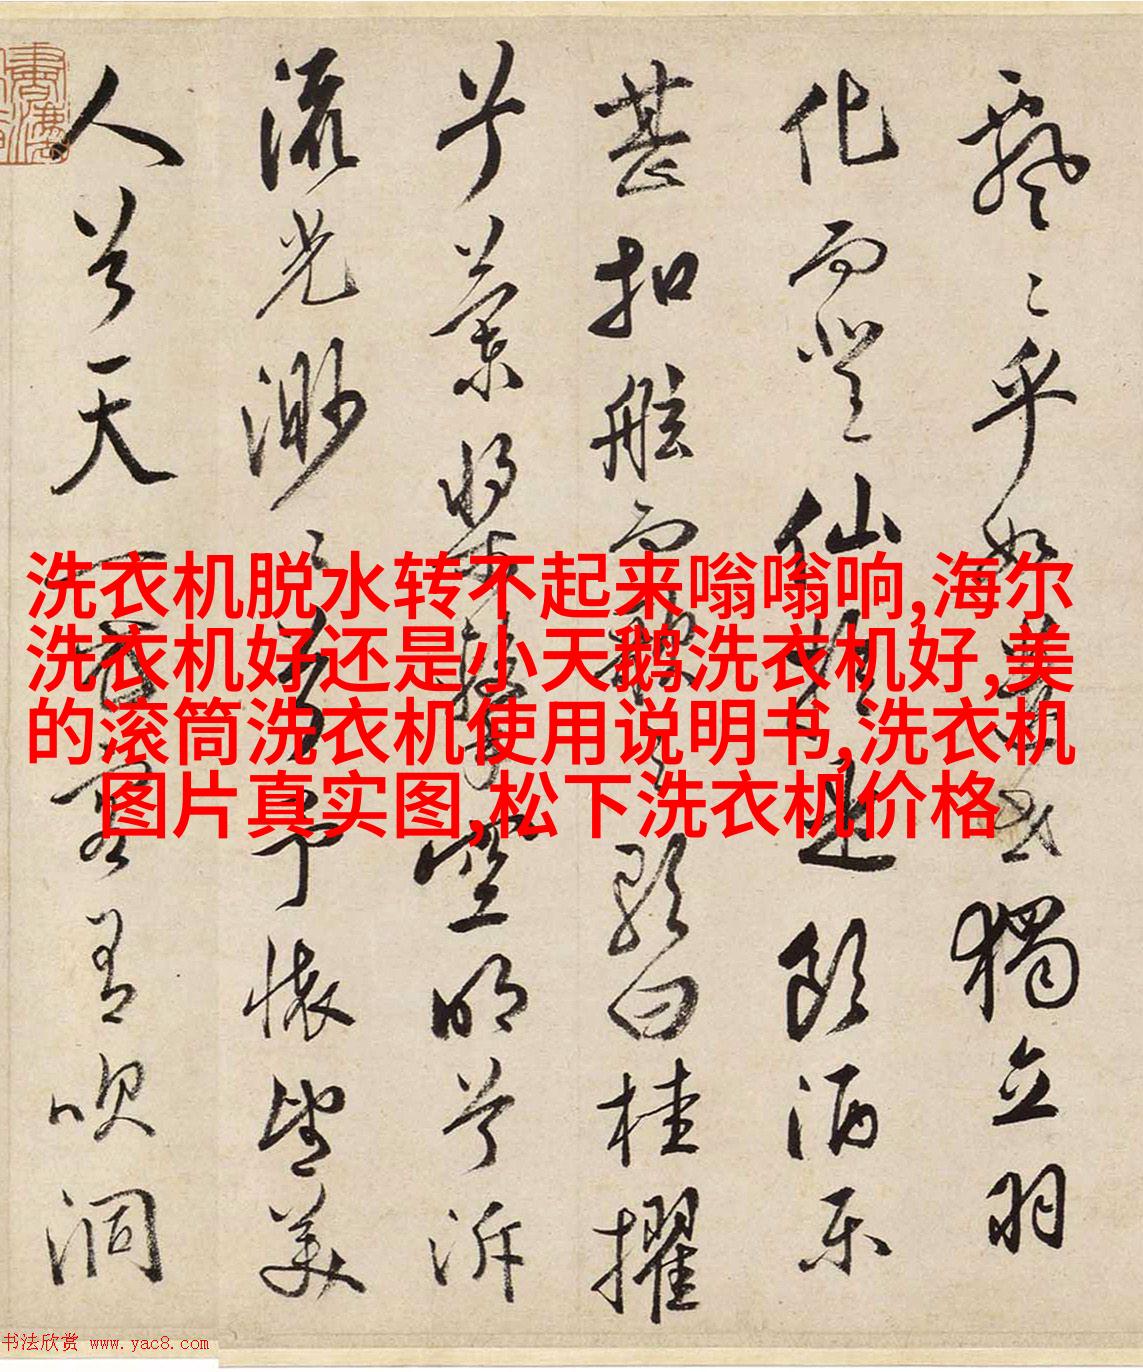 飄々乎如遺世獨立羽
化而登仙於是飲酒樂
甚扣舷而歌之歌曰桂擢
兮蘭槳擊空明兮泝
流光渺々兮予懷望美
人兮天一方客有吹洞
洗衣机脱水转不起来嗡嗡响,海尔
洗衣机好还是小天鹅洗衣机好,美
的滚筒洗衣机使用说明书,洗衣机
图片真实图,松下洗衣机价格
书法欣赏 www.yac8.com